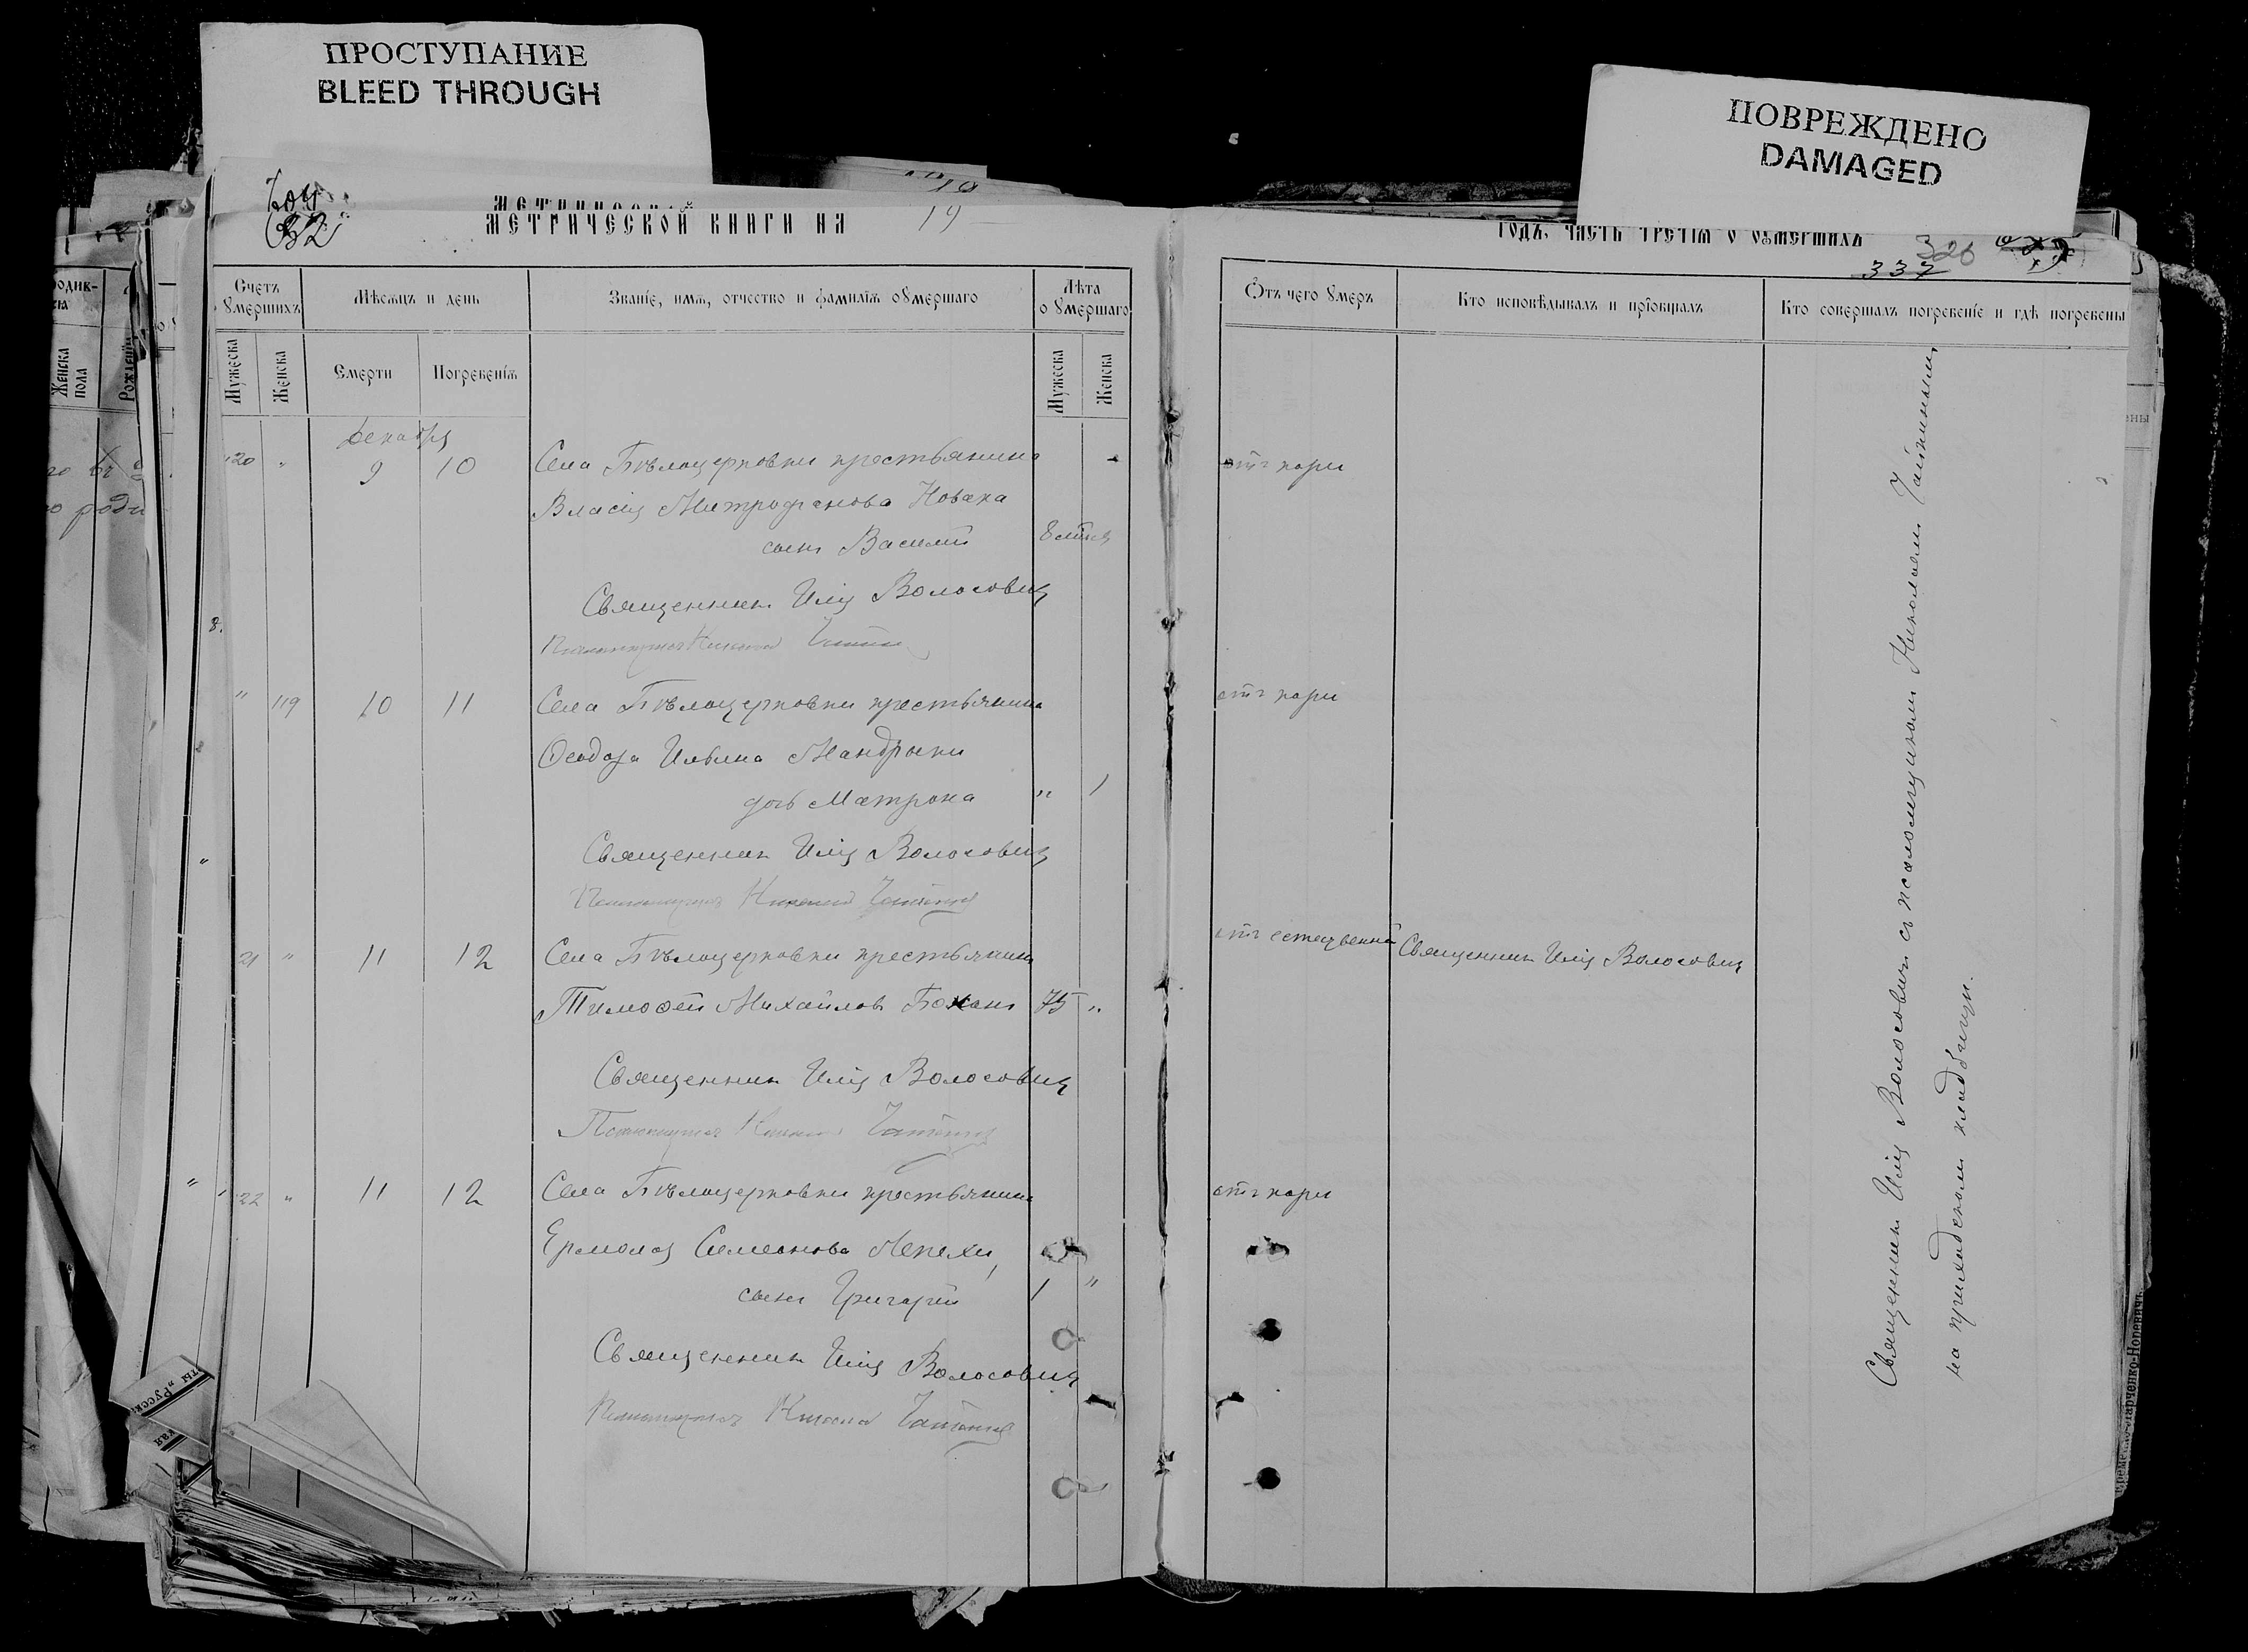 ПРОСТУПАНИЕ
BLEED THROUGH
ПОВРЕЖДЕНО
DAMAGED
32
МЕТРИЧЕСКОЙ КНИГИ НА 19
ГОДЪ, ЧАСТЬ ТРЕТІЯ О ОУМЕРШИХЪ
326
337
Счетъ оумершихъ
Мѣсяцъ и день
Званіе, имя, отчество и фамилія оумершаго
Лѣта оумершаго
Отъ чего умеръ
Кто исповѣдывалъ и пріобщалъ
Кто совершалъ погребеніе и гдѣ погребены
Мужеска
Женска
Смерти
Погребенія
Мужеска
Женска
Декабря
120 " 9 10 Села Бѣлоцерковки крестьянина отъ кори
Власія Митрофанова Новака
сынъ Василій 8
Священникъ Илія Волосовичъ
Псаломщикъ Николай
" 119 10 11 Села Бѣлоцерковки крестьянина отъ кори
Ѳеодора Ильина Мандрыки
дочь Матрона " 1
Священникъ Илія Волосовичъ
Псаломщикъ Николай
21 " 11 12 Села Бѣлоцерковки крестьянинъ отъ естественной Священникъ Илія Волосовичъ
Тимофей Михайловъ Боханъ 75 "
Священникъ Илія Волосовичъ
Псаломщикъ Николай
22 " 11 12 Села Бѣлоцерковки крестьянина отъ кори
Ермолая Симеонова Лепехи,
сынъ Григорій 1 "
Священникъ Илія Волосовичъ
Псаломщикъ Николай
Священникъ Илія Волосовичъ съ псаломщикомъ Николаемъ
на приходскомъ кладбищѣ.